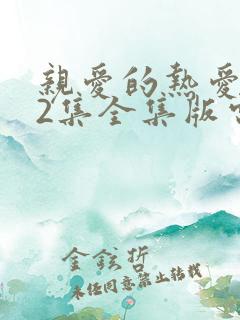 親愛的熱愛
2集全集版
金鉉哲
未經同意禁止轉載